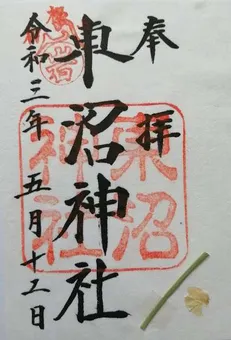 奉拝
東沼神社
東沼
神社
令和三年 五月十二日